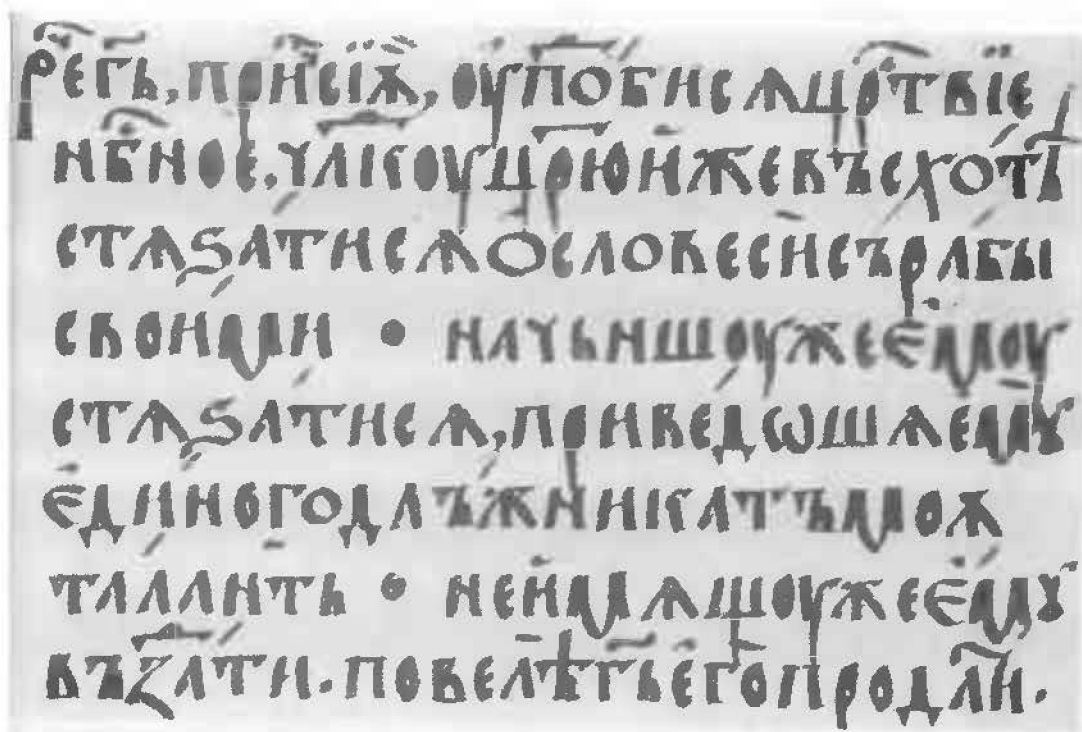 Рег҃ь, при́сїѫ, оупо҃бисѧ цр҃твїе
нб҃ное, чл҃коу цр҃ю и́же въсхо́тѣ
стѧѕа́тисѧ о словеси съ рабы
свои́ми • начьншоу же е̓моу
стѧѕа́тисѧ, приведѡшѧ емꙋ
е̓ди́ного длъжника тъмоѫ
тала́нть • не и̓мѧшоу же е̓мꙋ
въꙁ҃да́ти. повелѣ г҃ь его прода́ти.